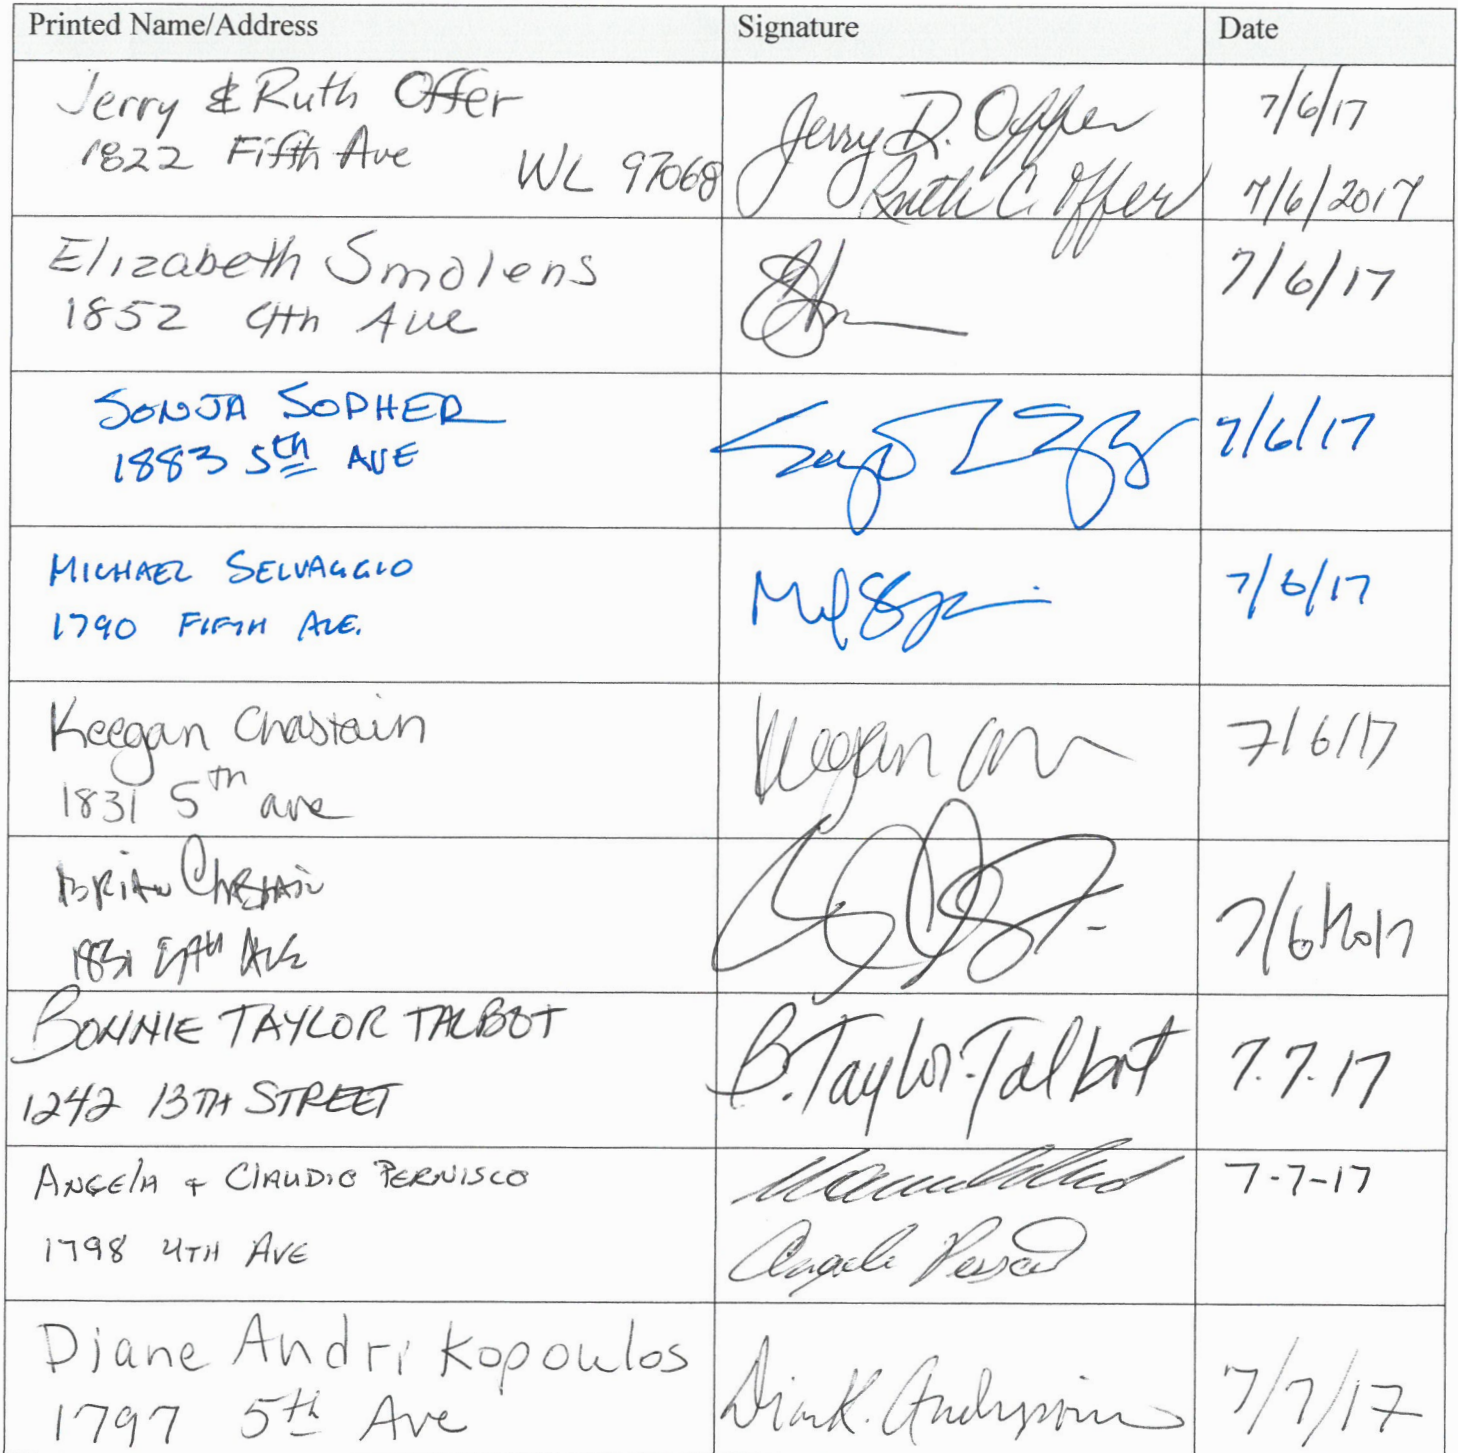 Printed Name/Address Signature Date
Jerry & Ruth Offer
1822 Fifth Ave WL 97068
Jerry D. Offer 7/6/17
Ruth C. Offer 7/6/2017
Elizabeth Smolens
1852 4th Ave
7/6/17
SONJA SOPHER
1883 5th AVE
7/6/17
MICHAEL SELVAGGIO
1790 FIFTH AVE.
7/6/17
Keegan Chastain
1831 5th ave
Keegan
7/6/17
BRIAN CHASTAIN
1831 FIFTH AVE
7/6/2017
BONNIE TAYLOR TALBOT
1242 13TH STREET
B. Taylor-Talbot 7.7.17
ANGELA + CLAUDIO PERNISCO
1798 4TH AVE
7-7-17
Angela
Diane Andrikopoulos
1797 5th Ave
7/7/17